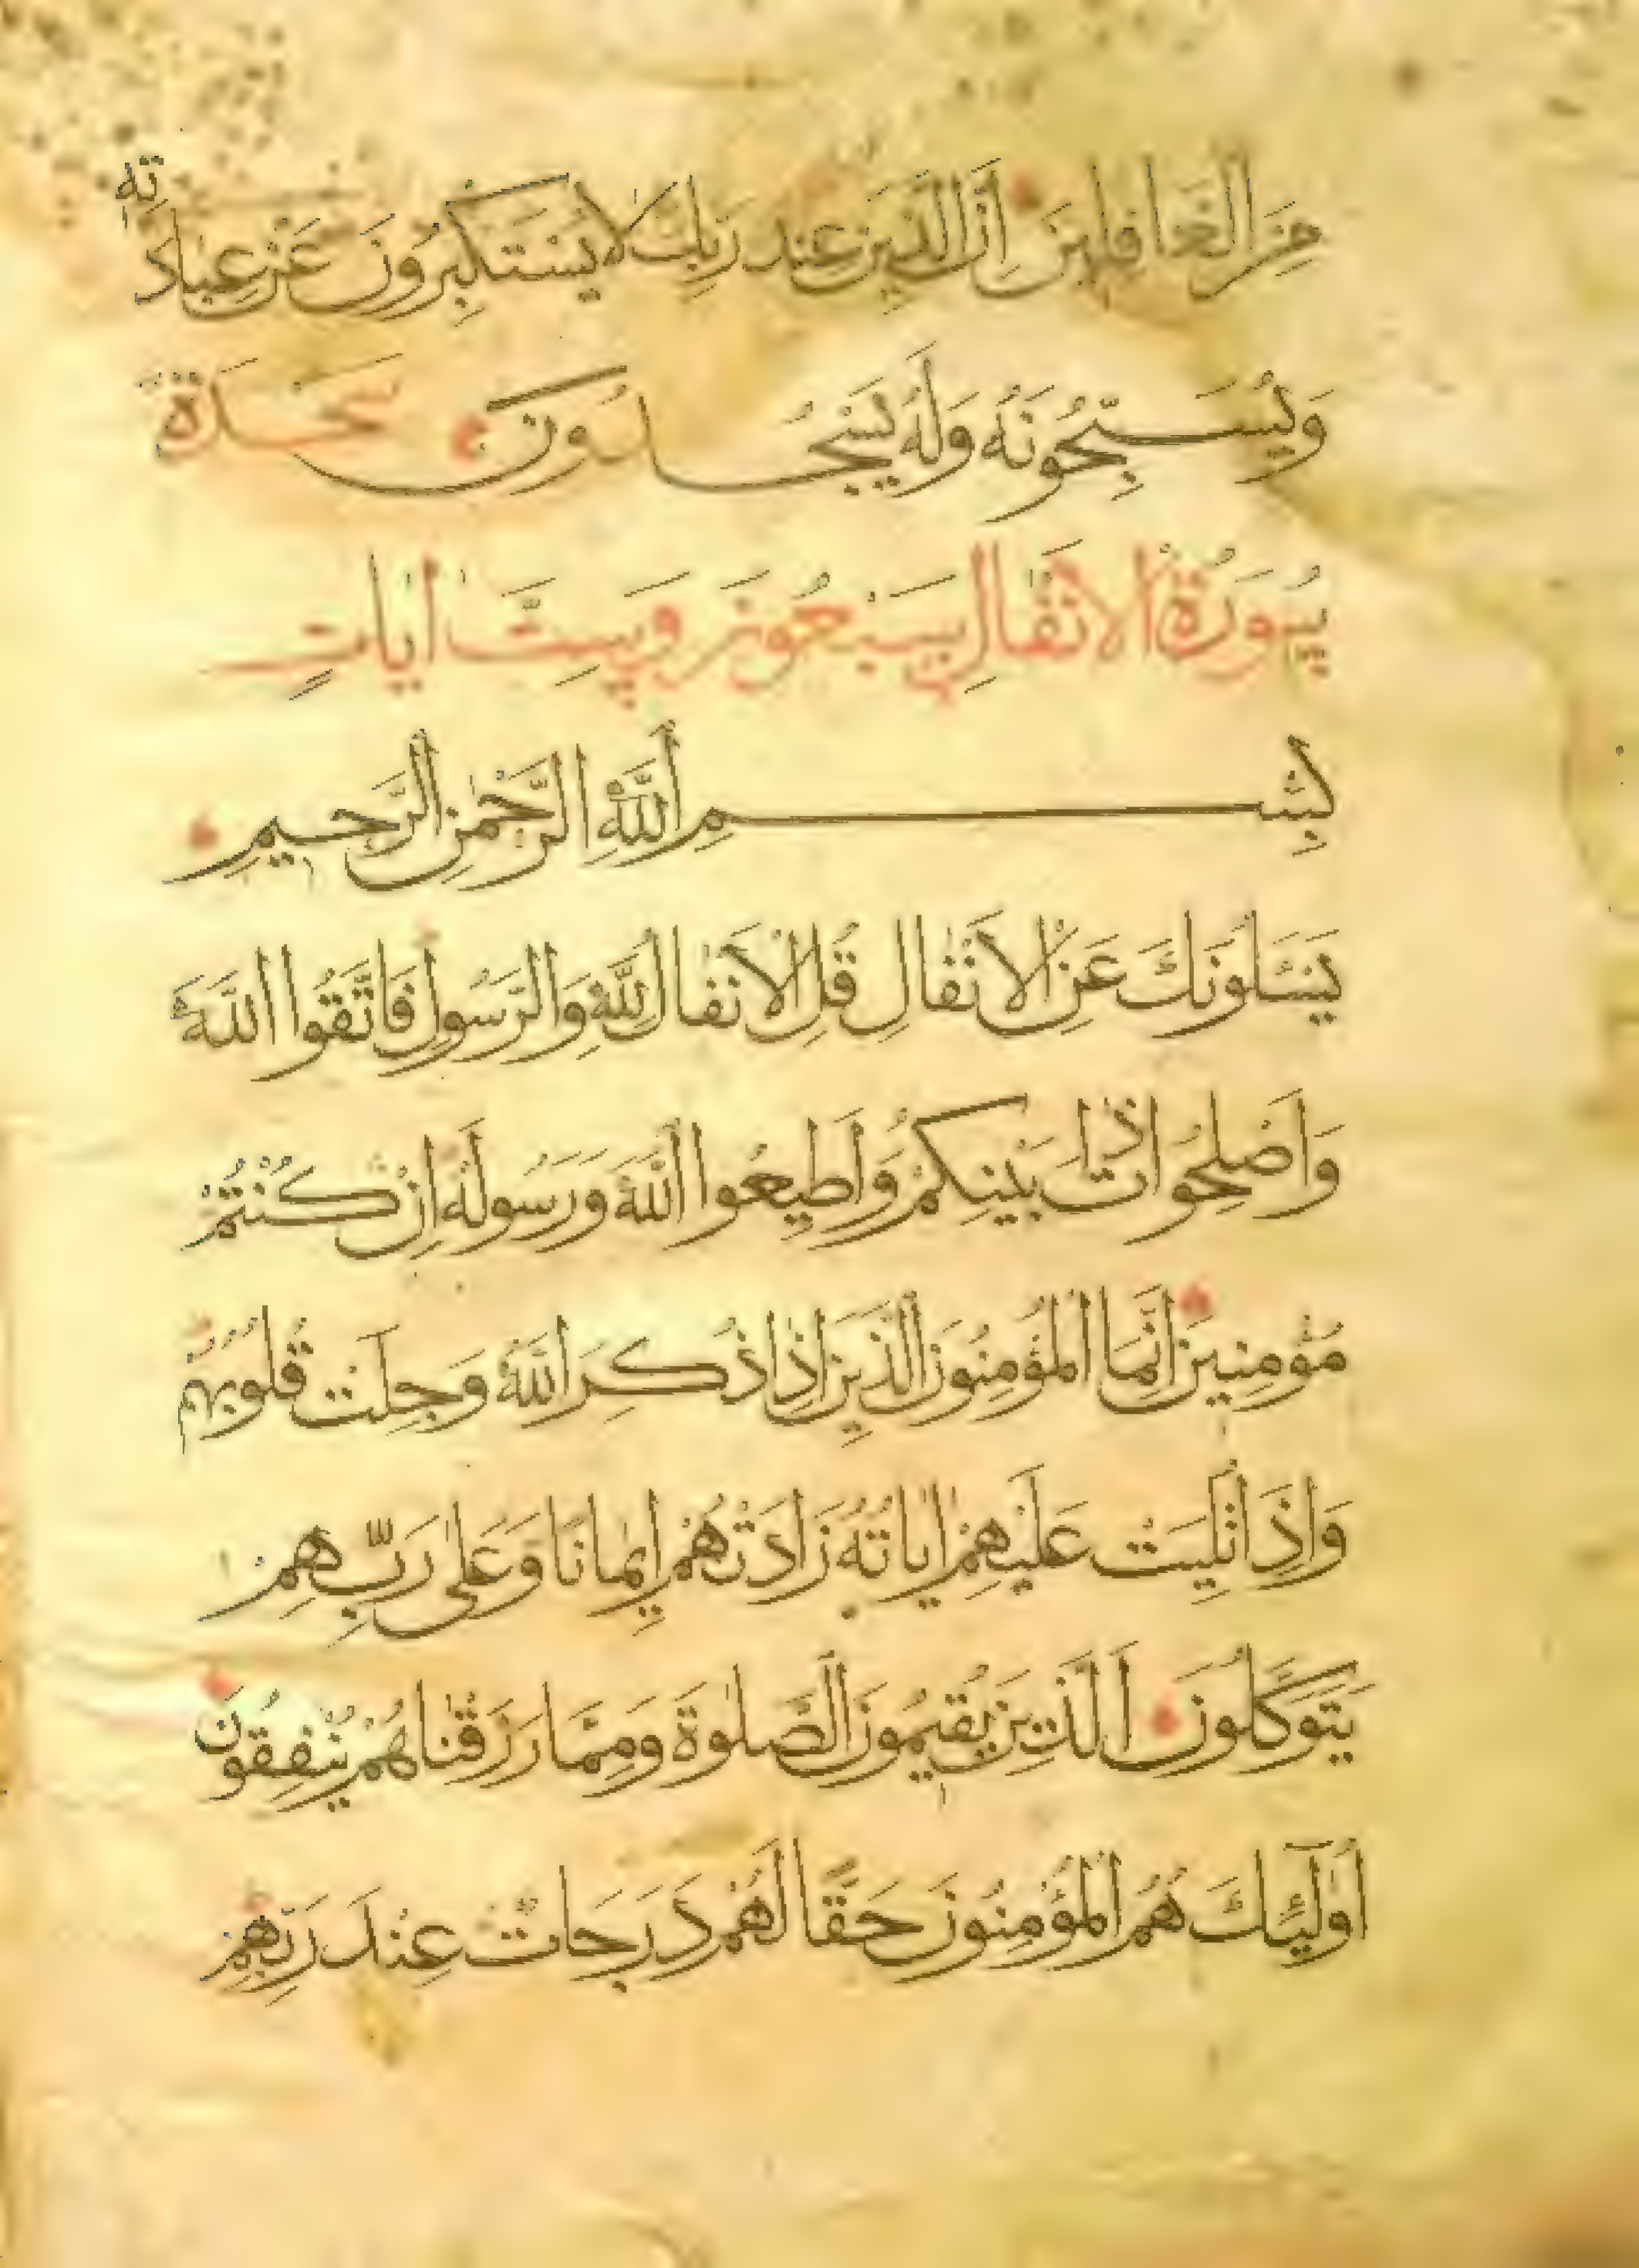 مِنَ الْغَافِلِينَ اِنَّ الَّذِينَ عِنْدَ رَبِّكَ لَا يَسْتَكْبِرُونَ عَنْ عِبَادَتِهِ
وَيُسَبِّحُونَهُ وَلَهُ يَسْجُدُونَ سَجْدَة
سُورَةُ الْاَنْفَالِ سَبْعُونَ وَسِتُّ اٰيَاتٍ
بِسْمِ اللَّهِ الرَّحْمٰنِ الرَّحِيمِ
يَسْئَلُونَكَ عَنِ الْاَنْفَالِ قُلِ الْاَنْفَالُ لِلَّهِ وَالرَّسُولِ فَاتَّقُوا اللَّهَ
وَاَصْلِحُوا ذَاتَ بَيْنِكُمْ وَاَطِيعُوا اللَّهَ وَرَسُولَهُ اِنْ كُنْتُمْ
مُؤْمِنِينَ اِنَّمَا الْمُؤْمِنُونَ الَّذِينَ اِذَا ذُكِرَ اللَّهُ وَجِلَتْ قُلُوبُهُمْ
وَاِذَا تُلِيَتْ عَلَيْهِمْ اٰيَاتُهُ زَادَتْهُمْ اِيمَانًا وَعَلٰى رَبِّهِمْ
يَتَوَكَّلُونَ الَّذِينَ يُقِيمُونَ الصَّلٰوةَ وَمِمَّا رَزَقْنَاهُمْ يُنْفِقُونَ
اُولٰئِكَ هُمُ الْمُؤْمِنُونَ حَقًّا لَهُمْ دَرَجَاتٌ عِنْدَ رَبِّهِمْ